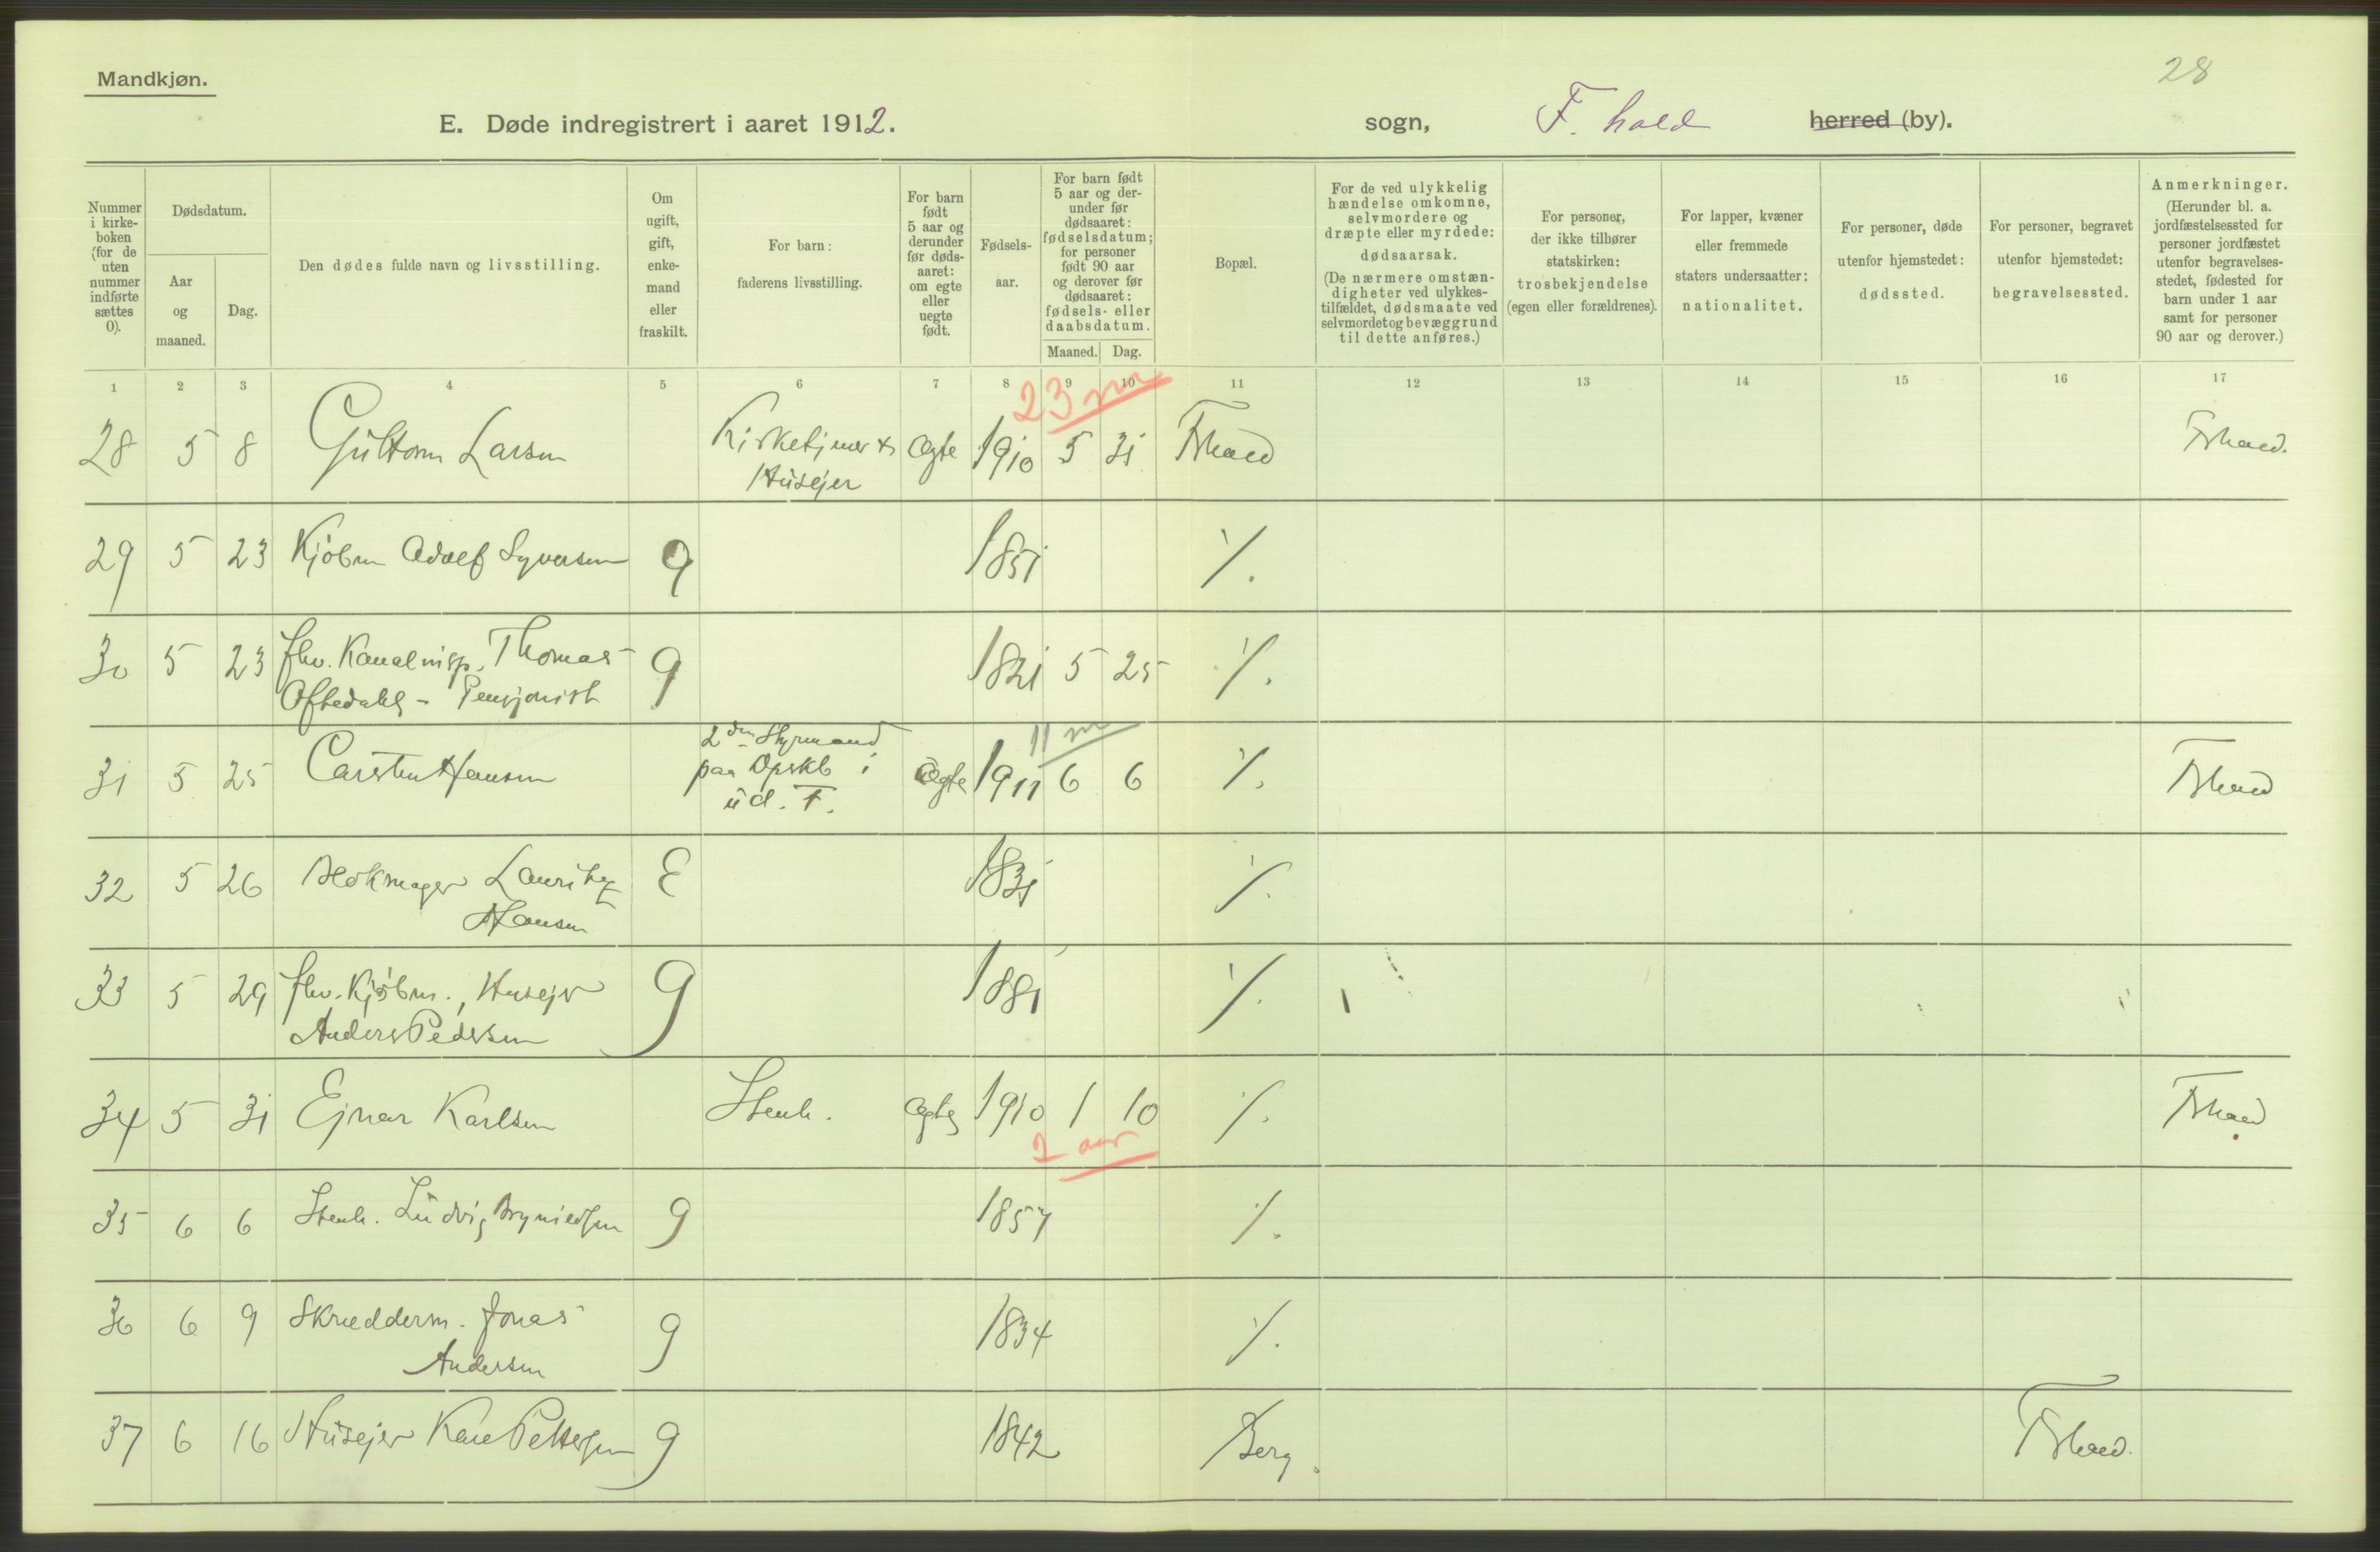 Mandkjøn.
28
E. Døde indregistrert i aaret 1912.
sogn, F. hald herred (by).
Nummer i kirke-boken (for de uten nummer indførte sættes 0).
Dødsdatum.
Aar og maaned.
Dag.
Den dødes fulde navn og livsstilling.
Om ugift, gift, enke-mand eller fraskilt.
For barn: faderens livsstilling.
For barn født 5 aar og derunder før døds-aaret: om egte eller uegte født.
Fødsels-aar.
For barn født 5 aar og der-under før dødsaaret: fødselsdatum; for personer født 90 aar og derover før dødsaaret: fødsels- eller daabsdatum.
Maaned. Dag.
Bopæl.
For de ved ulykkelig hændelse omkomne, selvmordere og dræpte eller myrdede: dødsaarsak. (De nærmere omstæn-digheter ved ulykkes-tilfældet, dødsmaate ved selvmordet og bevæggrund til dette anføres.)
For personer, der ikke tilhører statskirken: trosbekjendelse (egen eller forældrenes).
For lapper, kvæner eller fremmede staters undersaatter: nationalitet.
For personer, døde utenfor hjemstedet: dødssted.
For personer, begravet utenfor hjemstedet: begravelsessted.
Anmerkninger. (Herunder bl. a. jordfæstelsessted for personer jordfæstet utenfor begravelses-stedet, fødested for barn under 1 aar samt for personer 90 aar og derover.)
1 2 3 4 5 6 7 8 9 10 11 12 13 14 15 16 17
23 m
28 5 8 Guttorm Larsen Kirketjener & Husejer Ægte 1910 5 31 Fhald Fhald.
29 5 23 Kjøbm Adolf Syversen g 1851 ⁒
30 5 23 fhv. Kanalinsp. Thomas g 1821 5 25 ⁒
Oftedahl - Pensjonist
11 m
31 5 25 Carsten Hansen 2den Styrmand paa Opskb i ud. F. Ægte 1911 6 6 ⁒ Fhald
32 5 26 Blokmager Lauritz E 1831 ⁒
Hansen
33 5 29 fhv. Kjøbm., Husejer g 1881 ⁒
Anders Pedersen
34 5 31 Ejnar Karlsen Stenh. Ægte 1910 1 10 ⁒ Fhald
2 aar
35 6 6 Stenh. Ludvig Brynildsen g 1857 ⁒
36 6 9 Skrædderm. Jonas g 1834 ⁒
Andersen
37 6 16 Husejer Karl Pettersen g 1842 Berg. Fhald.